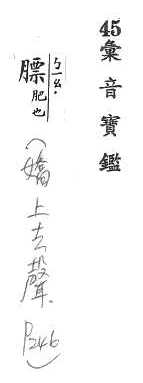 45彙音寶鑑
膘ㄅㄧㄠ·肥也
(嬌上去聲.P246)